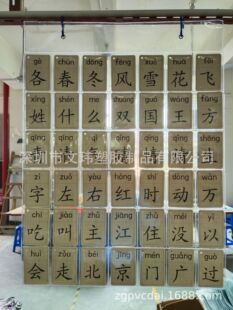 gè chūn dōng fēng xuě huā fēi
各 春 冬 风 雪 花 飞
xìng shén me shuāng guó wáng fāng
姓 什 么 双 国 王 方
qīng qīng qíng
深圳市文玮塑胶制品有限公司
zì zuǒ yòu hóng shí dòng wàn
字 左 右 红 时 动 万
chī jiào zhǔ jiāng zhù méi yǐ
吃 叫 主 江 住 没 以
huì zǒu běi jīng mén guǎng guò
会 走 北 京 门 广 过
zgpvcdai.1688.com